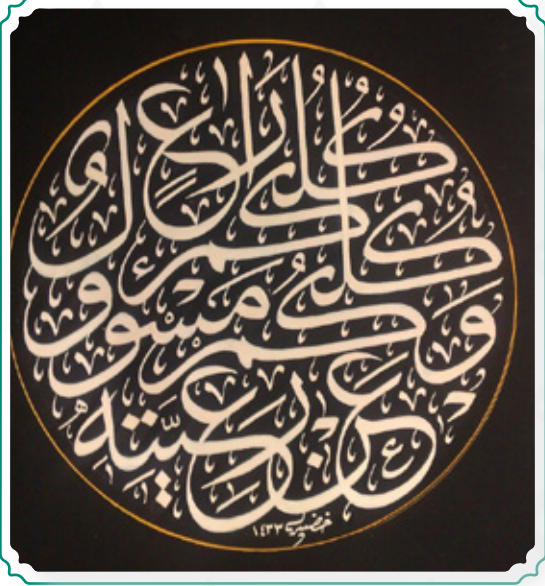 كلكم راعٍ
وكلكم مسؤول
عن رعيته
خضير ١٤٣٣